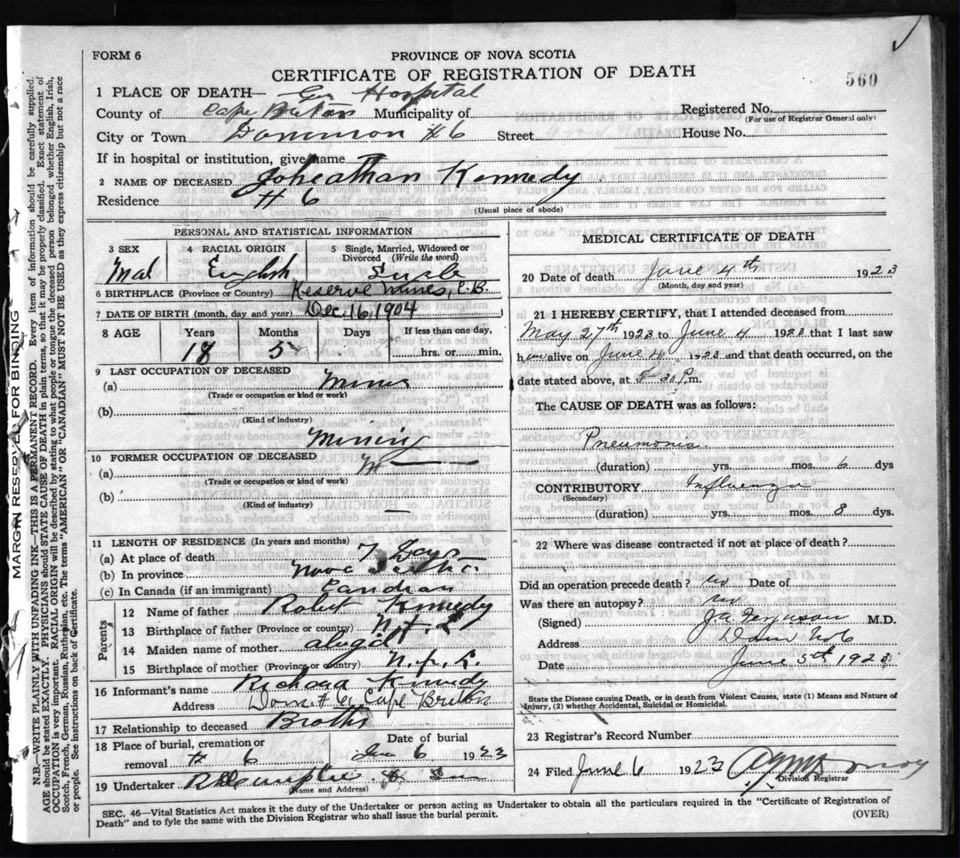 FORM 6
PROVINCE OF NOVA SCOTIA
CERTIFICATE OF REGISTRATION OF DEATH
560
1 PLACE OF DEATH— Hospital
County of Cape Breton Municipality of
Registered No.
(For use of Registrar General only)
City or Town Dominion #6 Street House No.
If in hospital or institution, give name
2 NAME OF DECEASED Kennedy
Residence #6
(Usual place of abode)
PERSONAL AND STATISTICAL INFORMATION
3 SEX 4 RACIAL ORIGIN 5 Single, Married, Widowed or Divorced (Write the word)
Mal English
6 BIRTHPLACE (Province or Country) Reserve Mines, C.B.
7 DATE OF BIRTH (month, day and year) Dec. 16, 1904
8 AGE Years Months Days If less than one day,
18 5 hrs. or min.
9 LAST OCCUPATION OF DECEASED
(a) Miner
(Trade or occupation or kind or work)
(b)
(Kind of industry)
Mining
10 FORMER OCCUPATION OF DECEASED
(a)
(Trade or occupation or kind of work)
(b)
(Kind of industry) —
11 LENGTH OF RESIDENCE (In years and months)
(a) At place of death 7 Days
(b) In province
(c) In Canada (if an immigrant)
Parents
12 Name of father Robert Kennedy
13 Birthplace of father (Province or country)
14 Maiden name of mother
15 Birthplace of mother (Province or country)
16 Informant's name Richard Kennedy
Address Dom #6 Cape Breton
17 Relationship to deceased
18 Place of burial, cremation or removal # 6
Date of burial 6 1923
19 Undertaker
(Name and Address)
MEDICAL CERTIFICATE OF DEATH
20 Date of death June 4th 1923
(Month, day and year)
21 I HEREBY CERTIFY, that I attended deceased from
May 27th 1923 to June 4 1923 that I last saw
him alive on June 4 1923 and that death occurred, on the
date stated above, at m.
The CAUSE OF DEATH was as follows:
Pneumonia
(duration) yrs. mos. 6 dys
CONTRIBUTORY Influenza
(Secondary)
(duration) yrs. mos. 8 dys.
22 Where was disease contracted if not at place of death?
Did an operation precede death? no Date of
Was there an autopsy? no
(Signed) Ferguson M.D.
Address Dom No 6
Date June 5th 1923
State the Disease causing Death, or in death from Violent Causes, state (1) Means and Nature of
Injury, (2) whether Accidental, Suicidal or Homicidal.
23 Registrar's Record Number
24 Filed June 6 1923
Division Registrar
SEC. 46—Vital Statistics Act makes it the duty of the Undertaker or person acting as Undertaker to obtain all the particulars required in the "Certificate of Registration of
Death" and to fyle the same with the Division Registrar who shall issue the burial permit.
(OVER)
MARGIN RESERVED FOR BINDING
N.B.—WRITE PLAINLY WITH UNFADING INK—THIS IS A PERMANENT RECORD. Every item of information should be carefully supplied.
AGE should be stated EXACTLY. PHYSICIANS should STATE CAUSE OF DEATH in plain terms, so that it may be properly classified. Exact statement of
OCCUPATION is very important. RACIAL ORIGIN will be described by stating to what people or tongue the deceased person belonged whether English, Irish,
Scotch, French, German, Russian, Ruthenian, etc. The terms "AMERICAN" OR "CANADIAN" MUST NOT BE USED as they express citizenship but not a race
or people. See instructions on back of Certificate.